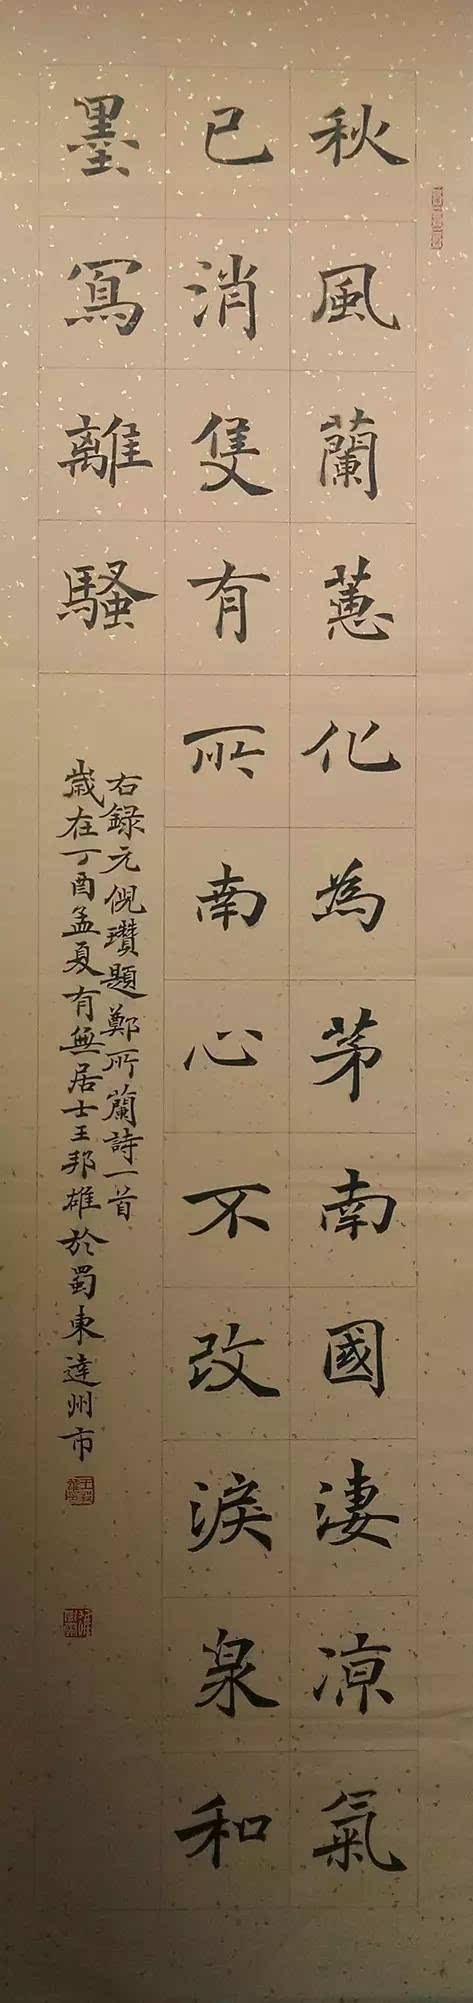 秋風蘭蕙化為茅南國淒涼氣
已消隻有所南心不改淚泉和
墨寫離騷
右録元倪瓚題鄭所蘭詩一首
歲在丁酉孟夏有無居士王邦雄於蜀東達州市